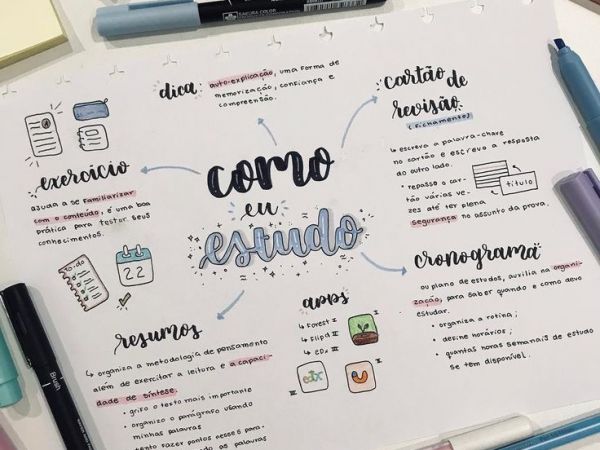 SAKURA COLOR
dica:
auto-explicação, uma forma de
memorização, confiança e
compreensão.
cartão de
revisão
(fichamento)
↳ escreva a palavra-chave
no cartão e escrevo a resposta
do outro lado.
• repasso o car-
tão várias ve-
zes até ter plena
segurança no assunto da prova.
título
exercício
ajuda a se familiarizar
com o conteúdo, é uma boa
prática para testar seus
conhecimentos.
como
eu
estudo
to.do
22
cronograma
ou plano de estudos, auxilia na organi-
zação, para saber quando e como devo
estudar.
• organiza a rotina;
• define horários;
• quantas horas semanais de estudo
se tem disponível.
apps
↳ Forest I
↳ Flipd II
↳ EDX III
I
III
edX
II
resumos
↳ organiza a metodologia de pensamento
além de exercitar a leitura e a capaci-
dade de síntese.
• grifo o texto mais importante
• organizo o parágrafo usando
minhas palavras
Brush